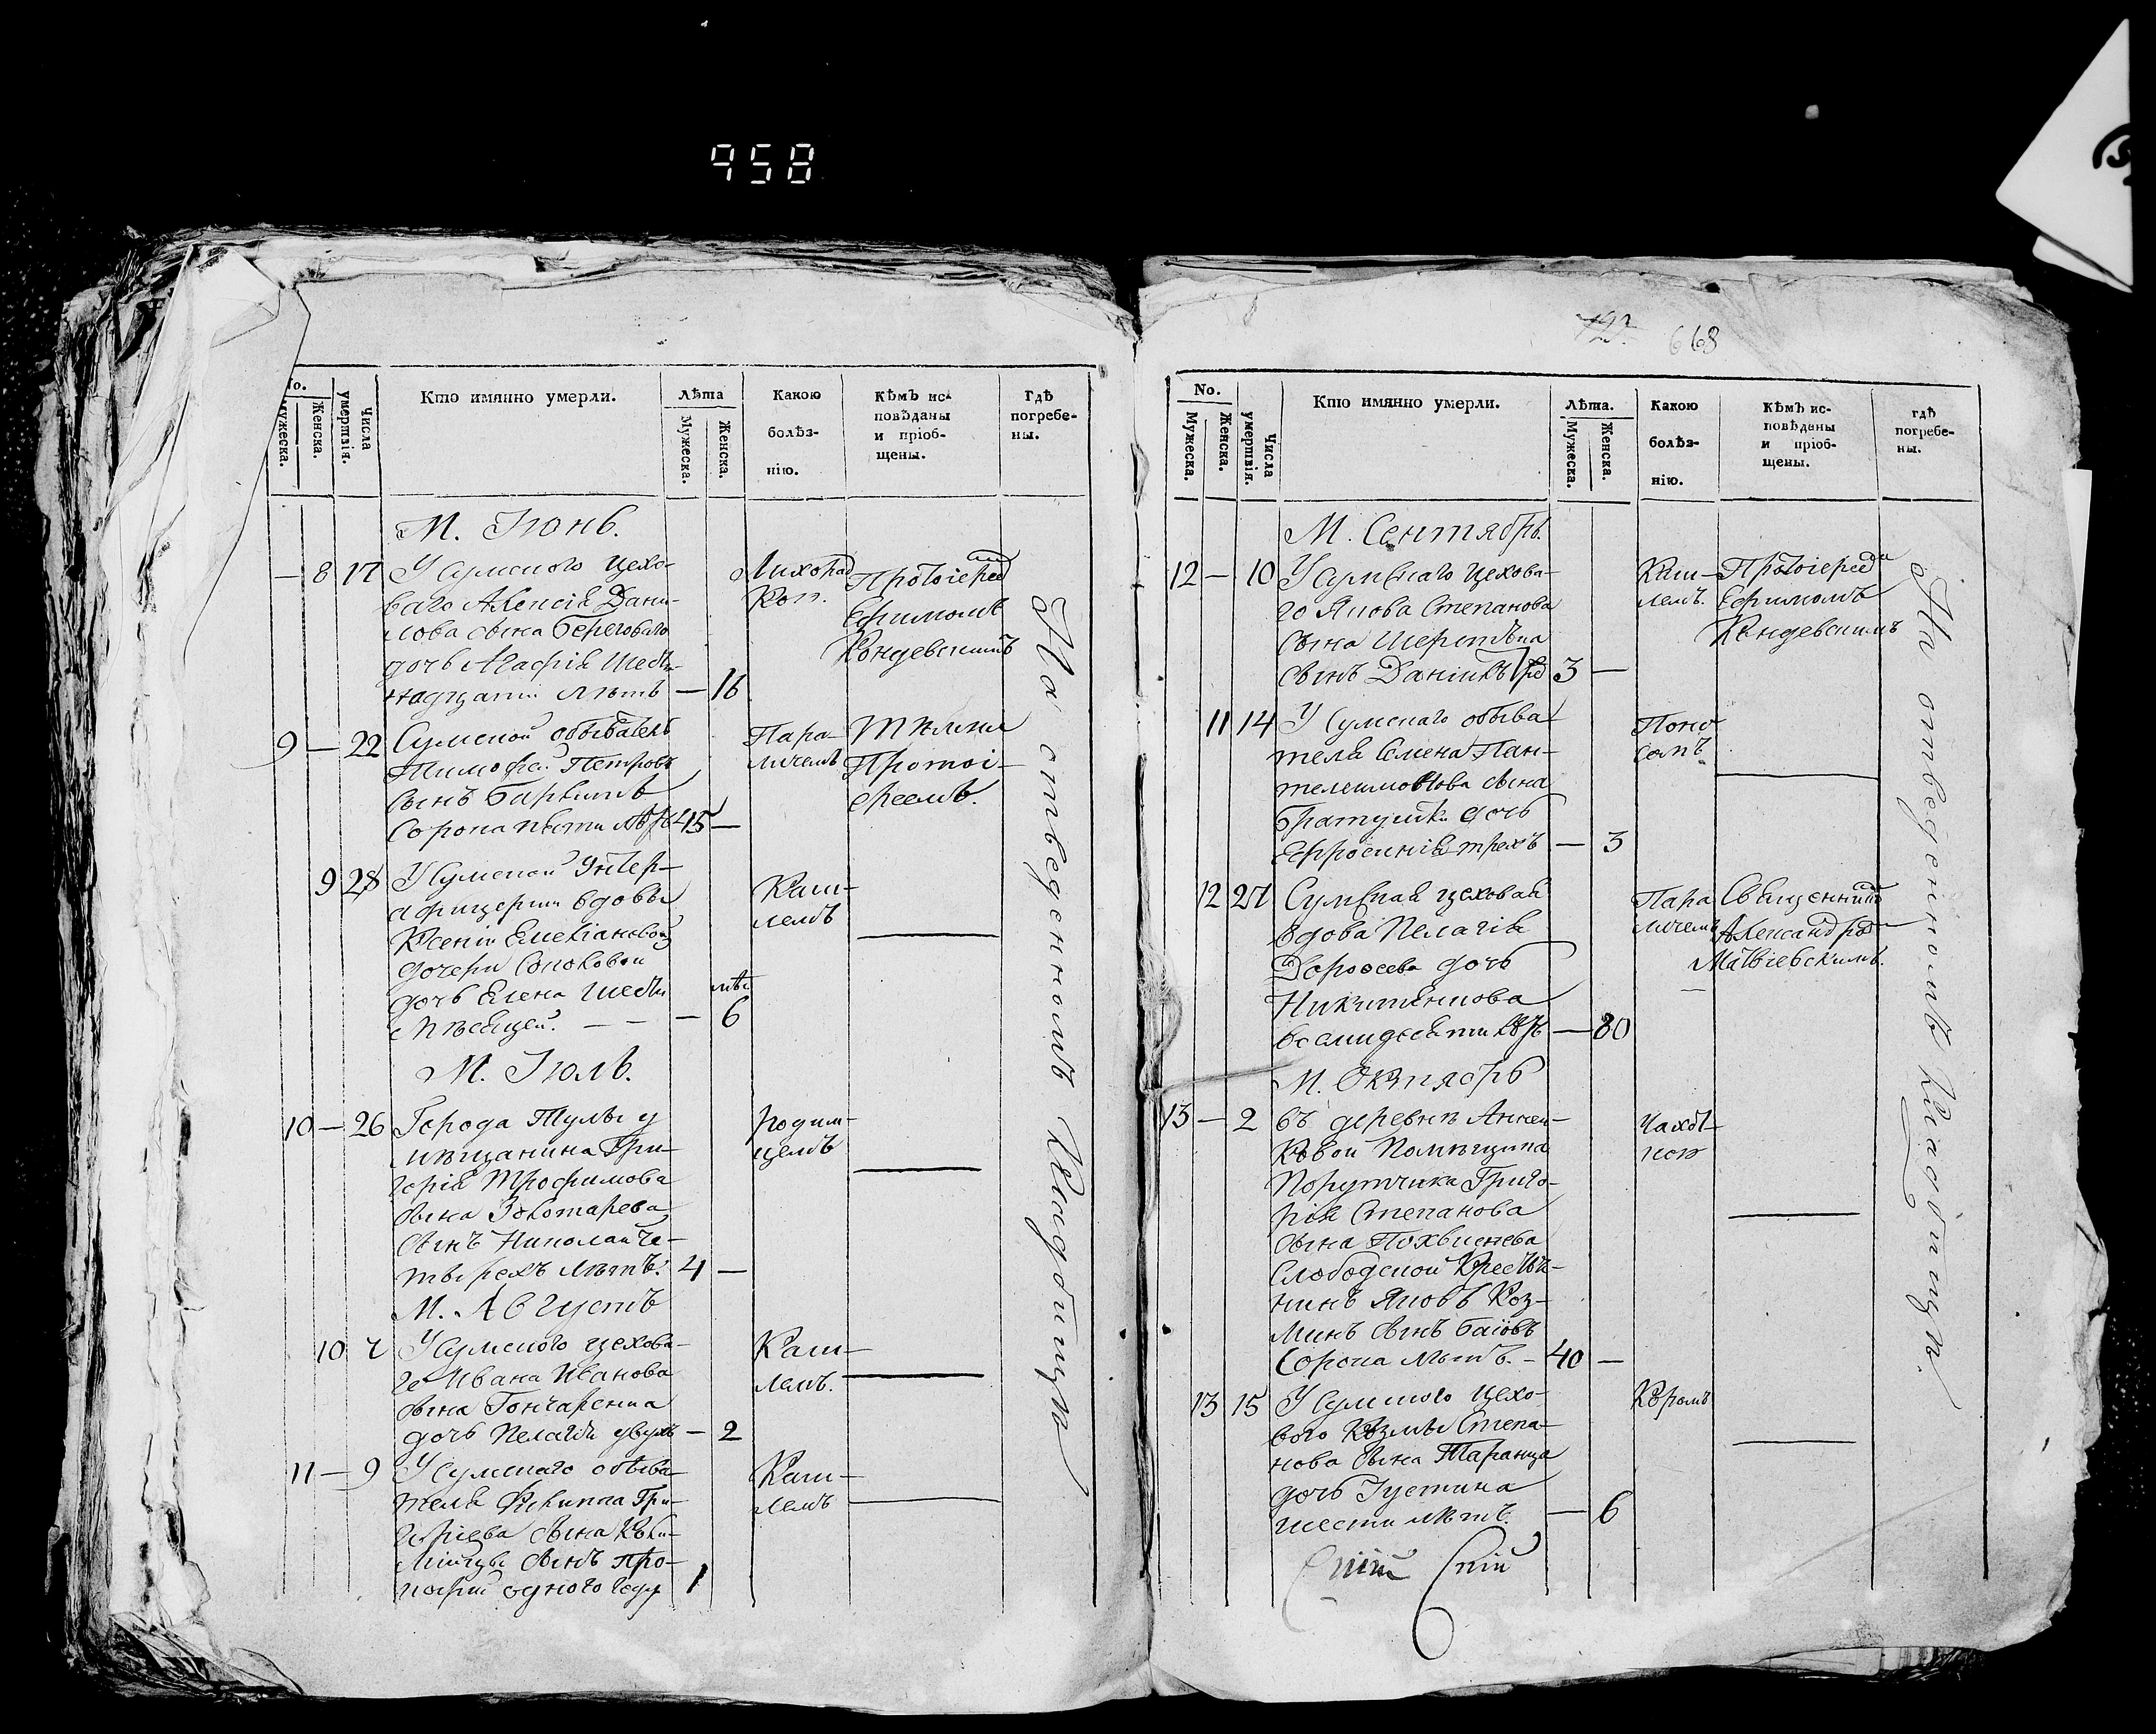 958
No.
Мужеска.
Женска.
Числа умертвія.
Кто имянно умерли.
Лѣта
Мужеска.
Женска.
Какою болѣз-
нію.
Кѣмъ ис-
повѣданы
и пріоб-
щены.
Гдѣ
погребе-
ны.
М. Іюнь.
— 8 17 У Сумского цехо-
ваго Алексія Дани-
лова сына Береговаго
дочь Агафія Шест-
надцати лѣтъ — 16
Лихорад
кою.
Протоіереемъ
Ефимомъ
Кондевскимъ
9 — 22 Сумской обыватель
Тимофей Петровъ
сынъ
Сорока пяти лѣтъ 45 —
Пара-
личемъ
Тѣмже
Протоі-
ереемъ.
9 28 У Сумской Унтер-
афицерши вдовы
Ксеніи Емеліановой
дочери
дочь Елена Шести
мѣсяцей. — — — мѣс 6
Каш-
лемъ
М. Іюль.
10 — 26 Города Тулы у
мѣщанина Гри-
горія Трофимова
сына Золотарева
сынъ Николай че-
тырехъ лѣтъ. 4 —
родим-
цемъ
М. Августъ
10 7 У Сумского цехова-
го Ивана Иванова
сына Гончаренка
дочь Пелагія двухъ — 2
Каш-
лемъ.
11 — 9 У Сумскаго обыва-
теля Филиппа Гри-
горіева сына
сынъ Про-
кофій одного года 1
Каш-
лемъ
На отведенномъ Кладбищѣ
723. 668
No.
Мужеска.
Женска.
Числа умертвія.
Кто имянно умерли.
Лѣта.
Мужеска.
Женска.
Какою
болѣз-
нію.
Кѣмъ ис-
повѣданы
и пріоб-
щены.
гдѣ
погребе-
ны.
М. Сентябрь.
12 — 10 У Сумскаго цехова-
го Якова Степанова
сына
сынъ Даніилъ 3 —
Каш-
лемъ.
Протоіереемъ
Ефимомъ
Кондевскимъ
11 14 У Сумскаго обыва
теля Семена Пан-
телеимонова сына
Братушки дочь
Ефросинія трехъ — 3
Поно
сомъ
12 27 Сумская цеховая
вдова Пелагія
Дороѳеева дочь
Никитенкова
восмидесяти лѣтъ — 80
Пара
личемъ
Священникомъ
Александромъ
Матвіевскимъ.
М. Октябрь
13 — 2 въ деревнѣ
Помѣщика
Порутчика Григо-
рія Степанова
сына Похвиснева
Слободской Крестья-
нинъ Яковъ Коз-
минъ сынъ Баіовъ
Сорока лѣтъ. — 40 —
Чахот-
кою
13 15 У Сумского цехо-
вого Козмы Степа-
нова сына Таранца
дочь Іустина
шести лѣтъ. — 6
На отведенномъ Кладбищѣ.